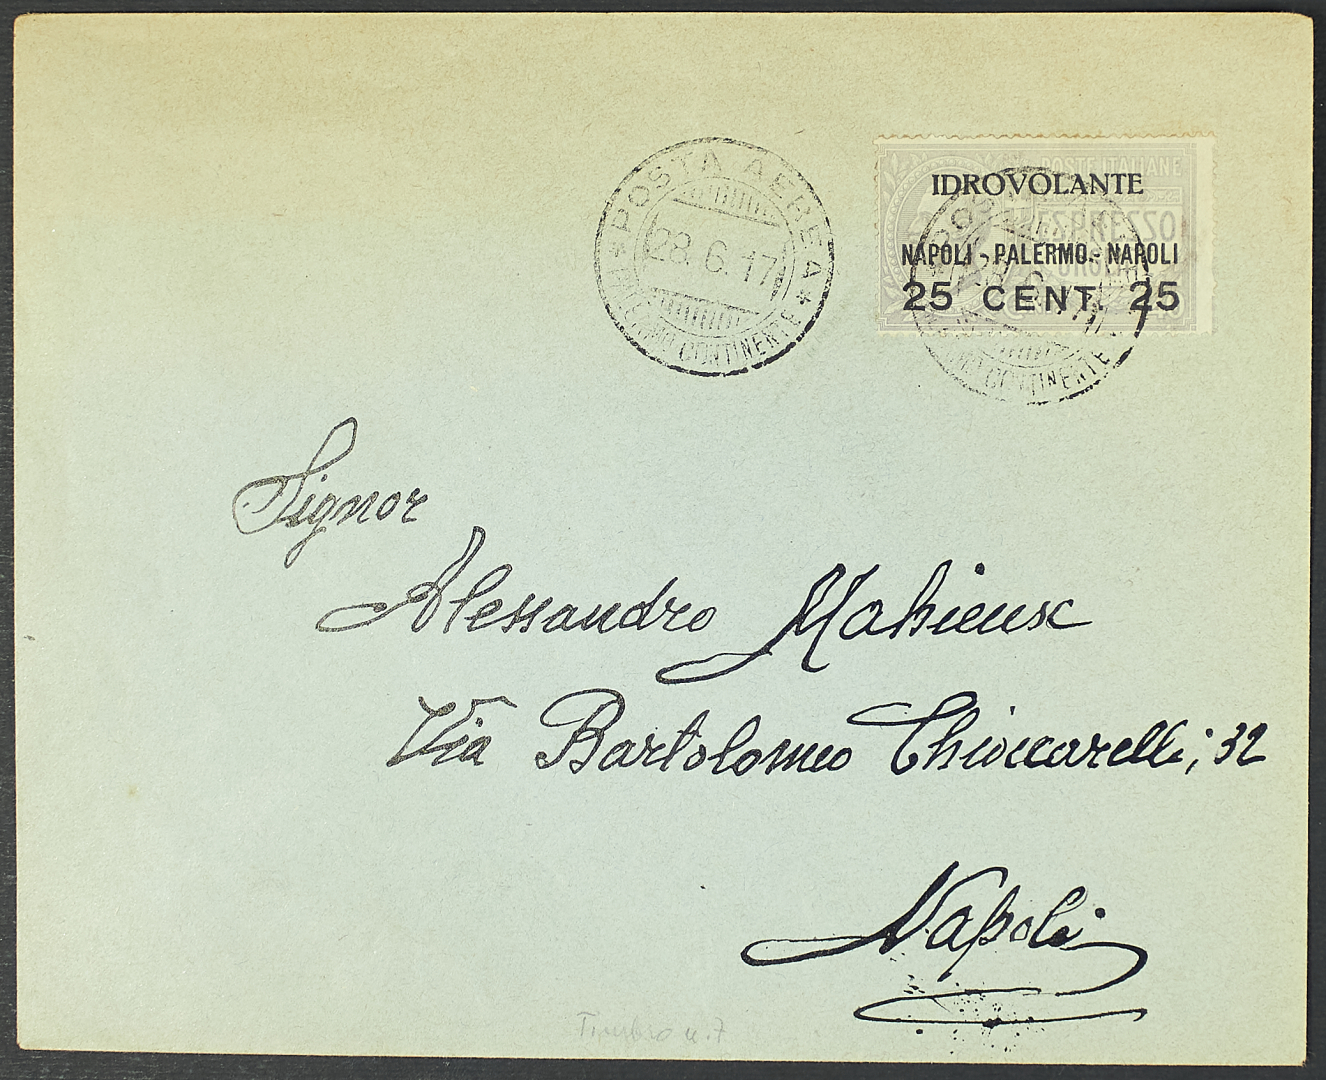 * POSTA AEREA *
28.6.17
PALERMO CONTINENTE
POSTE ITALIANE
ESPRESSO
IDROVOLANTE
NAPOLI - PALERMO - NAPOLI
25 CENT. 25
CONTINENTE
Signor
Alessandro Mahieux
Via Bartolomeo Chioccarelli, 32
Napoli
Timbro n. 7